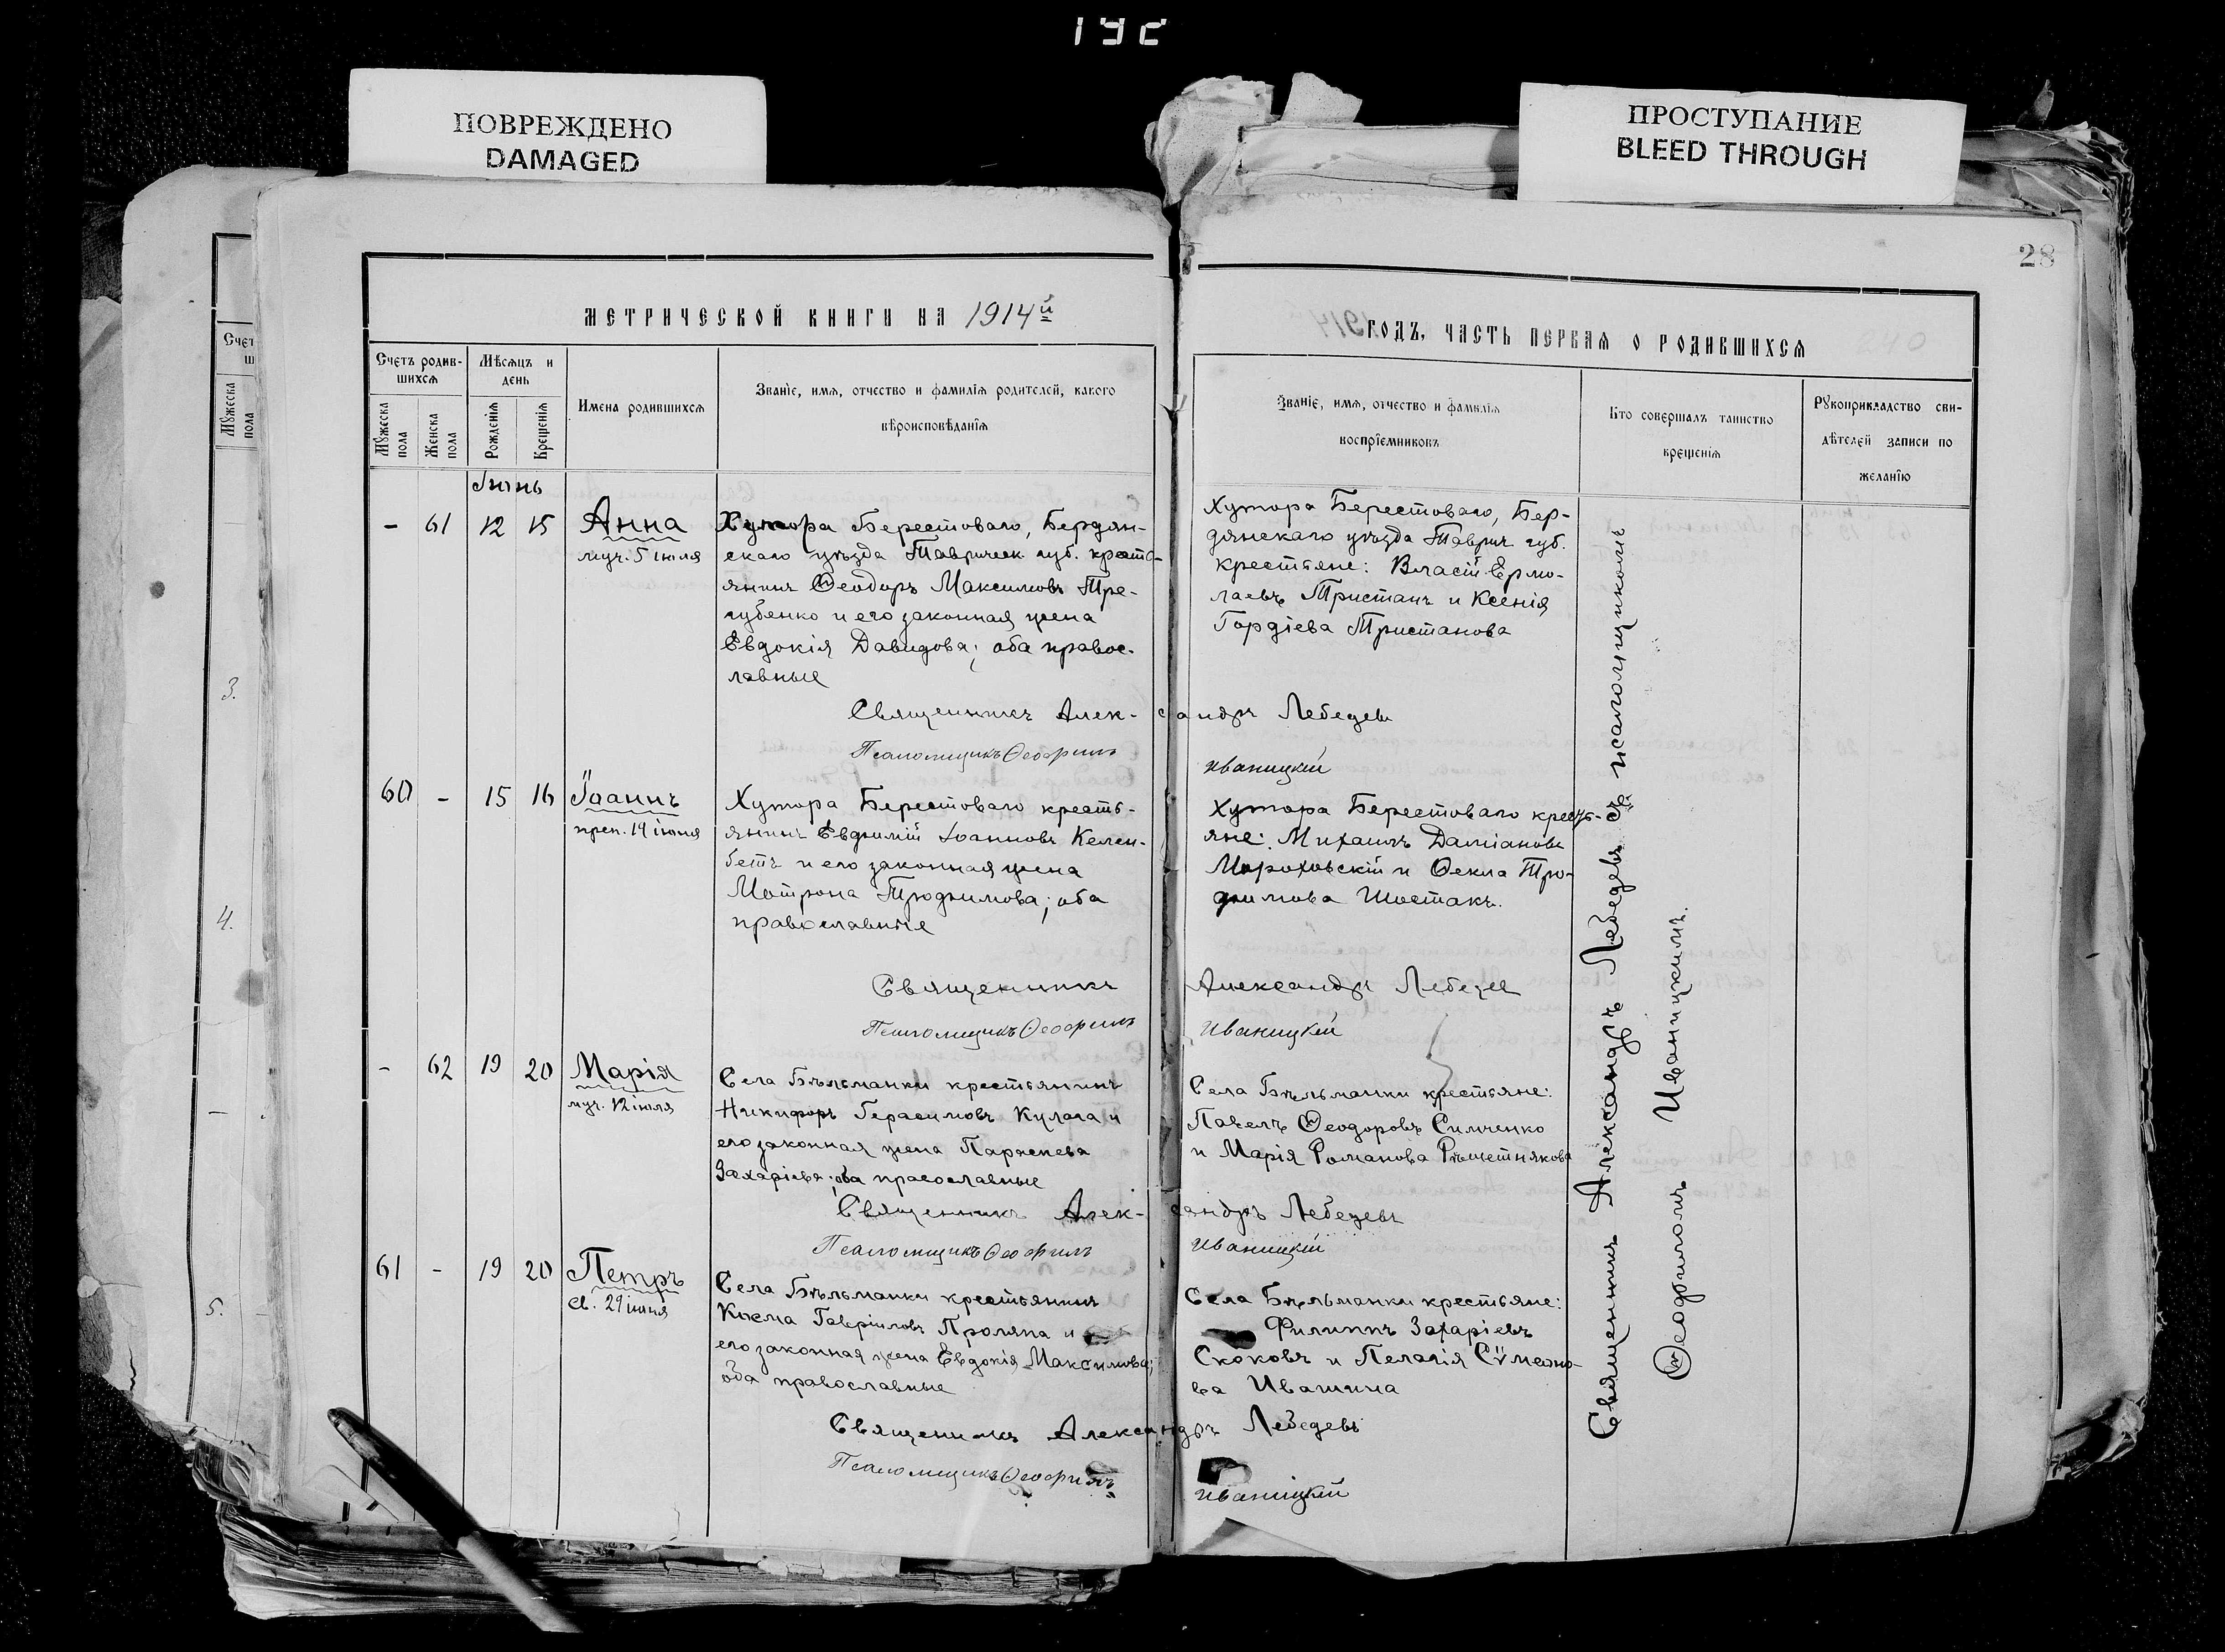 192
ПОВРЕЖДЕНО
DAMAGED
ПРОСТУПАНИЕ
BLEED THROUGH
28
МЕТРИЧЕСКОЙ КНИГИ НА 1914й
ГОДЪ, ЧАСТЬ ПЕРВАЯ О РОДИВШИХСЯ
Счетъ родив-
шихся
Мѣсяцъ и
день
Мужеска
пола
Женска
пола
Рожденія
Крещенія
Имена родившихся
Званіе, имя, отчество и фамилія родителей, какого
вѣроисповѣданія
Званіе, имя, отчество и фамилія
воспріемниковъ
Кто совершалъ таинство
крещенія
Рукоприкладство сви-
дѣтелей записи по
желанію
Іюнь
- 61 12 15 Анна
муч. 5 іюля
Хутора Берестоваго, Бердян-
скаго уѣзда Таврическ губ. кресть-
янинъ Ѳеодоръ Максимовъ Тре-
губенко и его законная жена
Евдокія Давидова; оба правос-
лавные
Хутора Берестоваго, Бер-
дянскаго уѣзда Таврич губ.
крестьяне: Власій Ермо-
лаевъ Тристанъ и Ксенія
Гордіева Тристанова
Священникъ Алек-сандръ Лебедевъ
Псаломщикъ Ѳеофилъ Иваницкій
60 - 15 16 Іоаннъ
преп. 19 іюня
Хутора Берестоваго кресть-
янинъ Евѳимій Іоанновъ Келем-
бетъ и его законная жена
Матрона Трофимова; оба
православные
Хутора Берестоваго кресть-
яне: Михаилъ Даміановъ
Мороховскій и Ѳекла Тро-
фимова Шостакъ.
Священникъ Александръ Лебедев
Псаломщикъ Ѳеофилъ Иваницкій
- 62 19 20 Марія
муч. 12 іюля
Села Бѣльманки крестьянинъ
Никифоръ Герасимовъ Кулага и
его законная жена Параскева
Захаріева; оба православные
Села Бѣльманки крестьяне:
Павелъ Ѳеодоровъ Симченко
и Марія Романова Рѣшетнякова
Священникъ Алек-сандръ Лебедевъ
Псаломщикъ Ѳеофилъ Иваницкій
61 - 19 20 Петръ
св. 29 іюня
Села Бѣльманки крестьянинъ
Косма Гавріиловъ Проляпа и
его законная жена Евдокія Максимова;
оба православные
Села Бѣльманки крестьяне:
Филиппъ Захаріевъ
Скоковъ и Пелагія Сѵмеоно-
ва Ивашина
Священникъ Александръ Лебедевъ
Псаломщикъ Ѳеофилъ Иваницкій
Священникъ Александръ Лебедевъ съ псаломщикомъ
Ѳеофиломъ Иваницкимъ.
Счет
ш
Мужеска
пола
3.
4.
5.